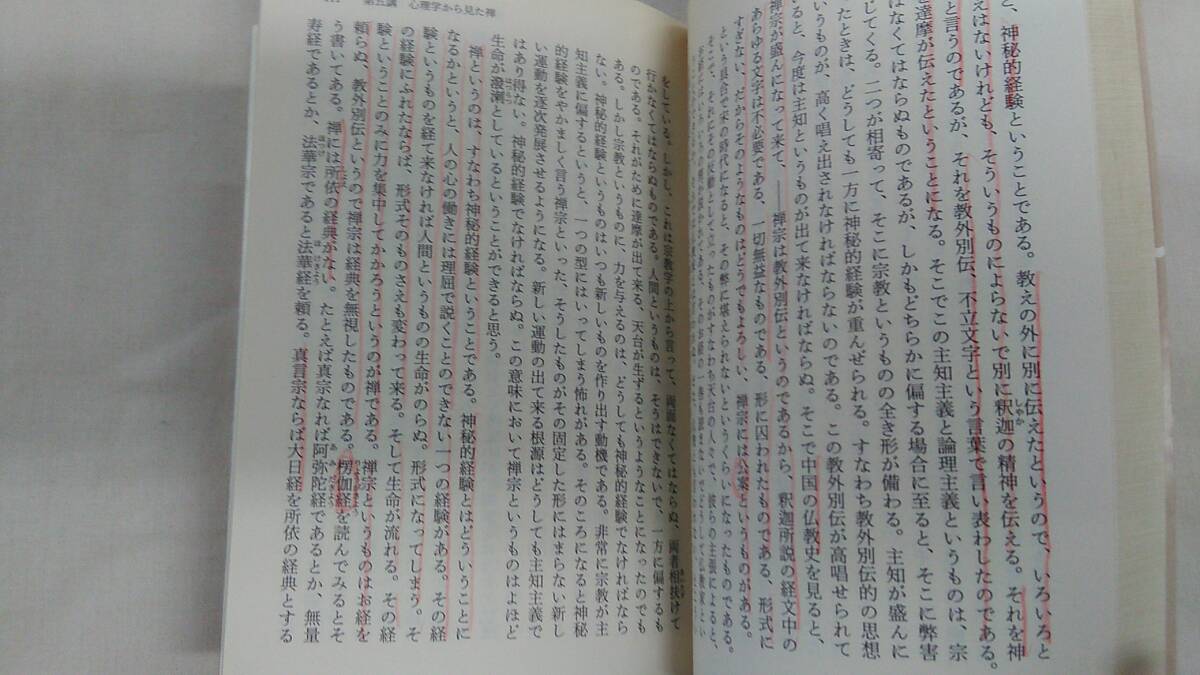 と、神秘的経験ということである。教えの外に別に伝えたというので、いろいろと
えはないけれども、そういうものによらないで別に釈迦の精神を伝える。それを神
と言うのであるが、それを教外別伝、不立文字という言葉で言い表わしたのである。
と達摩が伝えたということになる。そこでこの主知主義と論理主義というものは、宗
はなくてはならぬものであるが、しかもどちらかに偏する場合に至ると、そこに弊害
じてくる。二つが相寄って、そこに宗教というものの全き形が備わる。主知が盛んに
ったときは、どうしても一方に神秘的経験が重んぜられる。すなわち教外別伝的の思想
いうものが、高く唱え出されなければならないのである。この教外別伝が高唱せられて
ると、今度は主知というものが出て来なければならぬ。そこで中国の仏教史を見ると、
禅宗が盛んになって来て、――禅宗は教外別伝というのであるから、釈迦所説の経文中の
あらゆる文字は不必要である、一切無益なものである、形に囚われたものである、形式に
すぎない、だからそのようなものはどうでもよろしい、禅宗には公案というものがある。
という具合で宋の時代になると、その弊に堪えられないというくらいになったものである。
そこで、それにその反動として立ったものがすなわち天台の人々で、彼らの主張によると、
第五講　心理学から見た禅
をしている。しかし、これは宗教学の上から言って、両面なくてはならぬ、両者相扶けて
行かなくてはならぬものである。人間というものは、そうはできないで、一方に偏するも
のである。それがために達摩が出て来る、天台が生ずるというようなことになったのでも
ある。しかし宗教というものに、力を与えるのは、どうしても神秘的経験でなければなら
ない。神秘的経験というものはいつも新しいものを作り出す動機である。非常に宗教が主
知主義に偏するというと、一つの型にはいってしまう怖れがある。そのころになると神秘
的経験をやかましく言う禅宗といった、そうしたものがその固定した形にはまらない新し
い運動を逐次発展させるようになる。新しい運動の出て来る根源はどうしても主知主義で
はあり得ない。神秘的経験でなければならぬ。この意味において禅宗というものはよほど
生命が溌溂としているということができると思う。
禅というのは、すなわち神秘的経験ということである。神秘的経験とはどういうことに
なるかというと、人の心の働きには理屈で説くことのできない一つの経験がある。その経
験というものを経て来なければ人間というものの生命がのらぬ。形式になってしまう。そ
の経験にふれたならば、形式そのものさえも変わって来る。そして生命が流れる。その経
験ということのみに力を集中してかかろうというのが禅である。禅宗というものはお経を
頼らぬ、教外別伝というので禅宗は経典を無視したものである。楞伽経を読んでみるとそ
う書いてある。禅には所依の経典がない。たとえば真宗なれば阿弥陀経であるとか、無量
寿経であるとか、法華宗であると法華経を頼る。真言宗ならば大日経を所依の経典とする